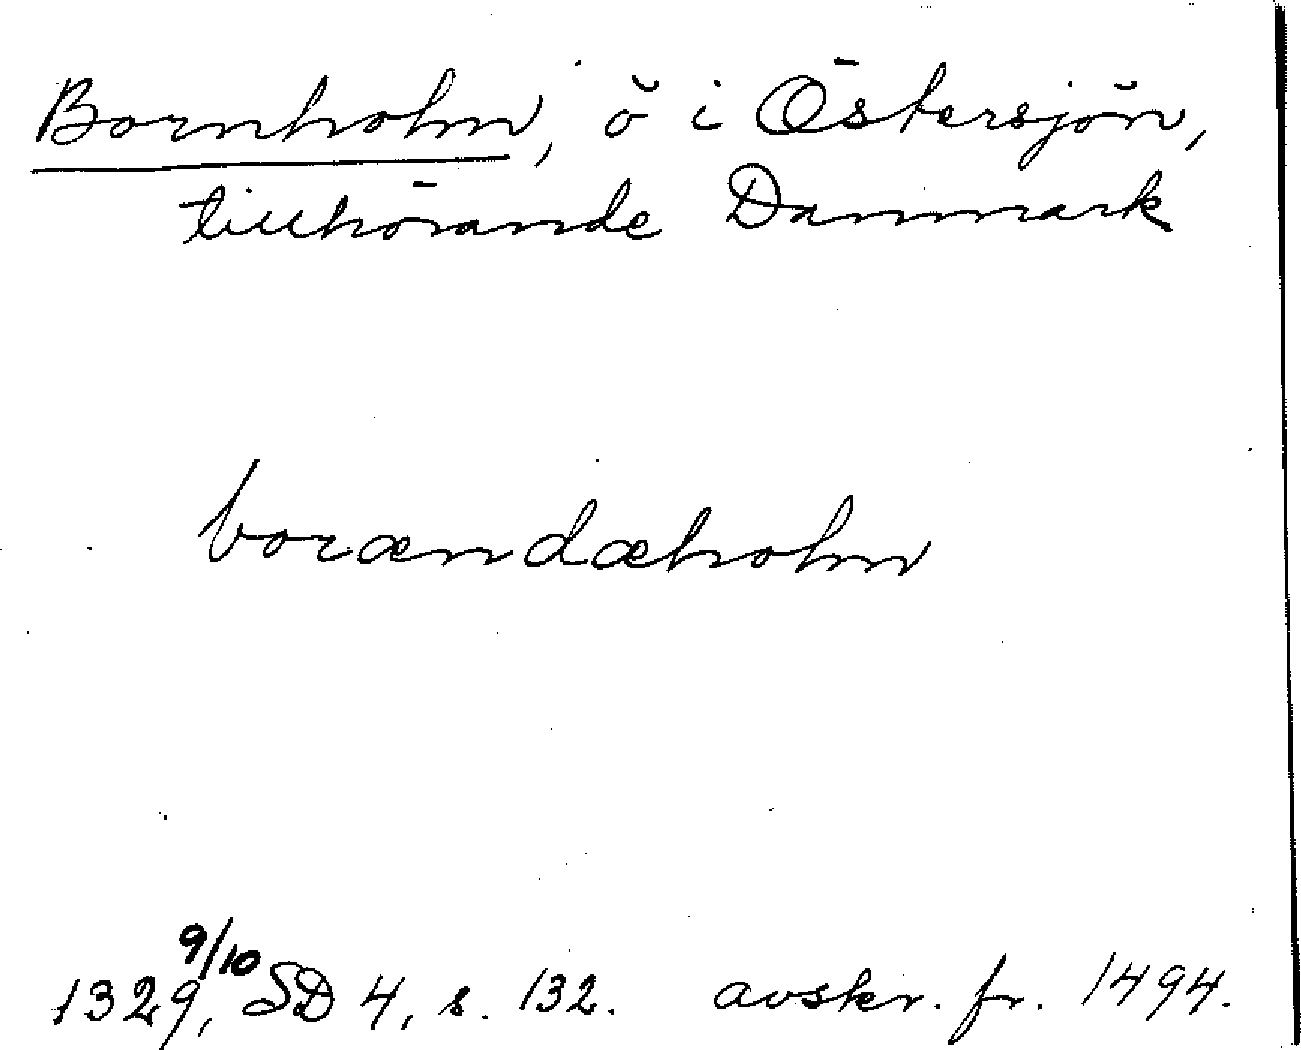 Bornholm, ö i Östersjön,
tillhörande Danmark
borændæholm
1329, 9/10 SD 4, s. 132. avskr. fr. 1494.